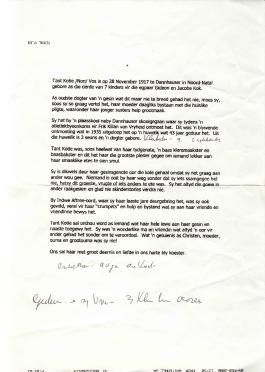 Tant Ketie /Noni/ Vos is op 28 November 1917 te Dannhauser in Noord-Natal
gebore as die derde van 7 kinders vir die egpaar Gideon en Jacoba Kok.
As oudste dogter van 'n gesin wat dit maar nie te breed gehad het nie, moes sy,
soos sy so graag vertel het, haar moeder daagliks bystaan met die huislike
pligte, onderwyl sy haar jonger susters help grootmaak.
Sy het by 'n plaasskool naby Dannhauser skoolgegaan waar sy tydens 'n
atletiekbyeenkoms vir Frik Kilian van Vryheid ontmoet het. Dit was 'n
ontmoeting wat in 1935 uitgeloop het op 'n huwelik wat 43 jaar geduur het. Uit
die huwelik is 2 seuns en 'n dogter gebore.
Tant Ketie was, soos heelwat van haar tydgenote, 'n baas kleremaakster en
en dit het haar die grootste plesier gegee om iemand lekker aan
haar smaaklike etes te sien smul.
Sy is dikwels deur haar gesinsgenote oor die kole gehaal omdat sy net graag aan
ander wou gee. Niemand is ooit by haar weg sonder dat sy iets saamgegee het
nie, hetsy dit groente, vrugte of iets anders te ete was. Sy het altyd die goeie in
ander raakgesien en glad nie skindertonge verdra nie.
By Indwe Aftree-oord, waar sy haar laaste jare deurgebring het, was sy ook
gewild, veral vir haar "crumpets" en hulp en bystand wat sy aan haar vriende en
vriendinne bewys het.
Tant Ketie sal onthou word as iemand wat haar hele lewe aan haar gesin en
naaste toegewy het. Sy was 'n wonderlike ma en vriendin wat altyd 'n oor vir
ander gehad het sonder om te veroordeel. Wat 'n getuienis as Christen, moeder,
ouma en grootouma was sy nie!
Ons sal haar met groot deernis en liefde in ons harte bly koester.